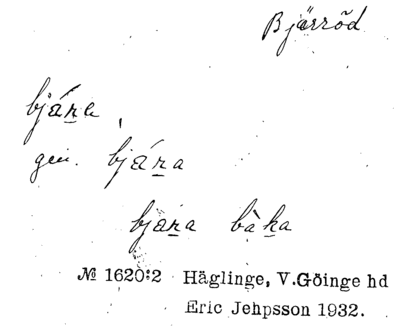 Bjärröd
bjáṉa,
gen. bjáṉa
bjáṉa bàḵa
№ 1620:2 Häglinge, V.Göinge hd
Eric Jehpsson 1932.